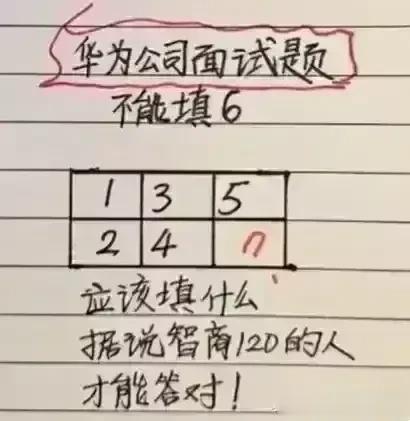 华为公司面试题
不能填6
1 3 5
2 4 ?
应该填什么
据说智商120的人
才能答对!